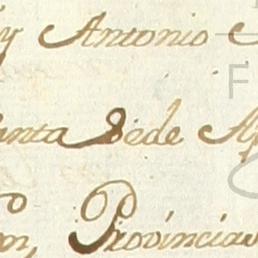 y Antonio
anta Sede Ap
on, Provincias